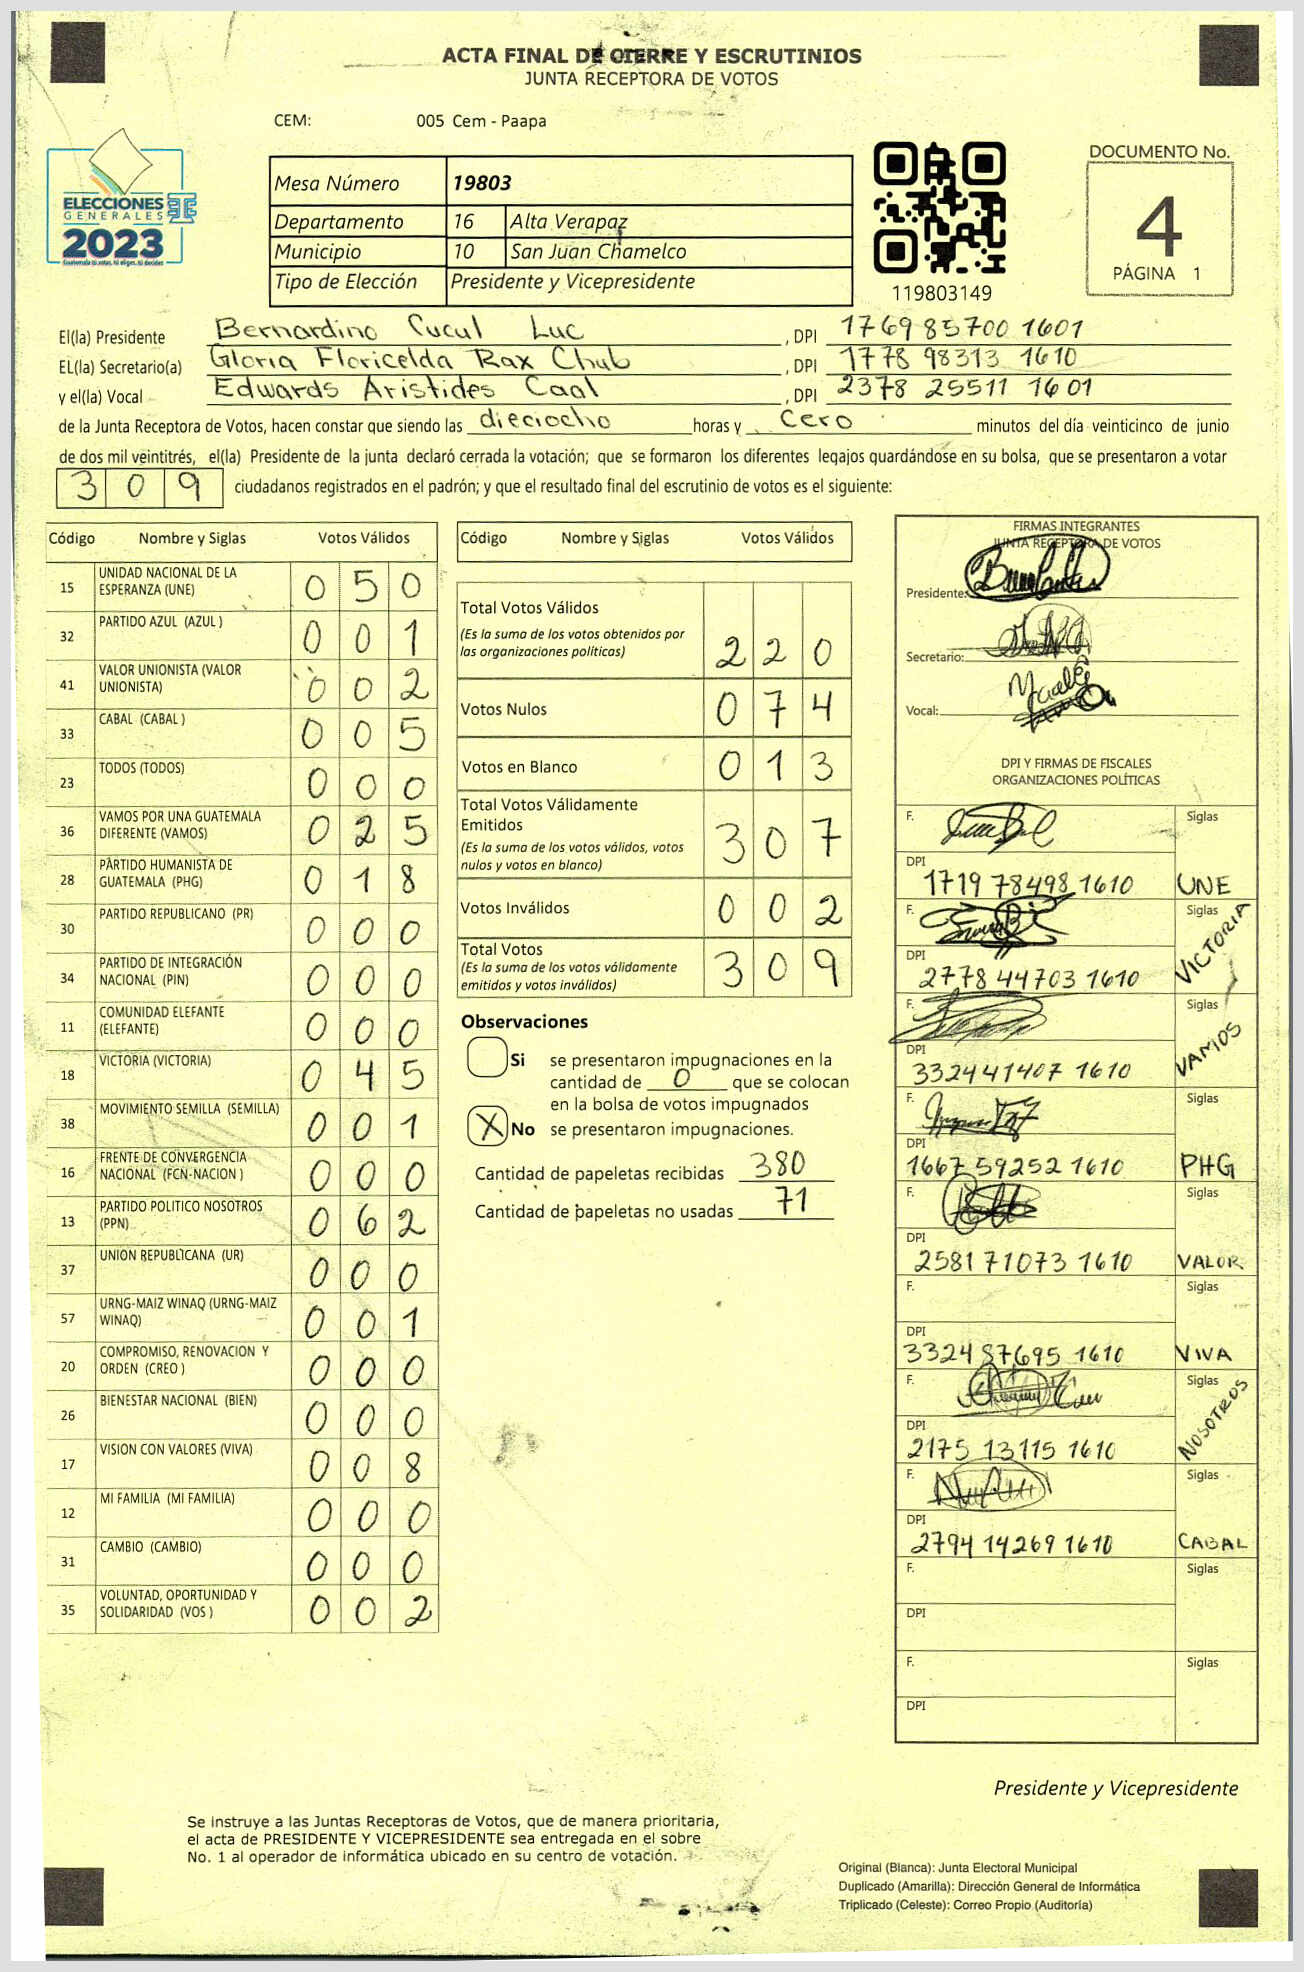 ACTA FINAL DE CIERRE Y ESCRUTINIOS
JUNTA RECEPTORA DE VOTOS
CEM: 005 Cem - Paapa
ELECCIONES
GENERALES
2023
Guatemala tú votas, tú eliges, tú decides
Mesa Número 19803
Departamento 16 Alta Verapaz
Municipio 10 San Juan Chamelco
Tipo de Elección Presidente y Vicepresidente
119803149
DOCUMENTO No.
4
PÁGINA 1
El(la) Presidente Bernardino Cucul Luc , DPI 1769 85700 1601
EL(la) Secretario(a) Gloria Floricelda Rax Chub , DPI 1778 98313 1610
y el(la) Vocal Edwards Aristides Caal , DPI 2378 25511 1601
de la Junta Receptora de Votos, hacen constar que siendo las dieciocho horas y cero minutos del día veinticinco de junio
de dos mil veintitrés, el(la) Presidente de la junta declaró cerrada la votación; que se formaron los diferentes legajos guardándose en su bolsa, que se presentaron a votar
309 ciudadanos registrados en el padrón; y que el resultado final del escrutinio de votos es el siguiente:
Código Nombre y Siglas Votos Válidos
15 UNIDAD NACIONAL DE LA
ESPERANZA (UNE) 0 5 0
32 PARTIDO AZUL (AZUL ) 0 0 1
41 VALOR UNIONISTA (VALOR
UNIONISTA) 0 0 2
33 CABAL (CABAL ) 0 0 5
23 TODOS (TODOS) 0 0 0
36 VAMOS POR UNA GUATEMALA
DIFERENTE (VAMOS) 0 2 5
28 PARTIDO HUMANISTA DE
GUATEMALA (PHG) 0 1 8
30 PARTIDO REPUBLICANO (PR) 0 0 0
34 PARTIDO DE INTEGRACIÓN
NACIONAL (PIN) 0 0 0
11 COMUNIDAD ELEFANTE
(ELEFANTE) 0 0 0
18 VICTORIA (VICTORIA) 0 4 5
38 MOVIMIENTO SEMILLA (SEMILLA) 0 0 1
16 FRENTE DE CONVERGENCIA
NACIONAL (FCN-NACION ) 0 0 0
13 PARTIDO POLITICO NOSOTROS
(PPN) 0 6 2
37 UNION REPUBLICANA (UR) 0 0 0
57 URNG-MAIZ WINAQ (URNG-MAIZ
WINAQ) 0 0 1
20 COMPROMISO, RENOVACION Y
ORDEN (CREO ) 0 0 0
26 BIENESTAR NACIONAL (BIEN) 0 0 0
17 VISION CON VALORES (VIVA) 0 0 8
12 MI FAMILIA (MI FAMILIA) 0 0 0
31 CAMBIO (CAMBIO) 0 0 0
35 VOLUNTAD, OPORTUNIDAD Y
SOLIDARIDAD (VOS ) 0 0 2
Código Nombre y Siglas Votos Válidos
Total Votos Válidos
(Es la suma de los votos obtenidos por
las organizaciones políticas) 2 2 0
Votos Nulos 0 7 4
Votos en Blanco 0 1 3
Total Votos Válidamente
Emitidos
(Es la suma de los votos válidos, votos
nulos y votos en blanco) 3 0 7
Votos Inválidos 0 0 2
Total Votos
(Es la suma de los votos válidamente
emitidos y votos inválidos) 3 0 9
Observaciones
Si se presentaron impugnaciones en la
cantidad de 0 que se colocan
en la bolsa de votos impugnados
X No se presentaron impugnaciones.
Cantidad de papeletas recibidas 380
Cantidad de papeletas no usadas 71
FIRMAS INTEGRANTES
JUNTA RECEPTORA DE VOTOS
Presidente:
Secretario:
Vocal:
DPI Y FIRMAS DE FISCALES
ORGANIZACIONES POLÍTICAS
F. Siglas
DPI
1719 78498 1610 UNE
F. Siglas
DPI
2778 44703 1610 VICTORIA
F. Siglas
DPI
3324 41407 1610 VAMOS
F. Siglas
DPI
1667 59252 1610 PHG
F. Siglas
DPI
2581 71073 1610 VALOR
F. Siglas
DPI
3324 87695 1610 VIVA
F. Siglas
DPI
2175 13115 1610 NOSOTROS
F. Siglas
DPI
2794 14269 1610 CABAL
F. Siglas
DPI
F. Siglas
DPI
Presidente y Vicepresidente
Se instruye a las Juntas Receptoras de Votos, que de manera prioritaria,
el acta de PRESIDENTE Y VICEPRESIDENTE sea entregada en el sobre
No. 1 al operador de informática ubicado en su centro de votación.
Original (Blanca): Junta Electoral Municipal
Duplicado (Amarilla): Dirección General de Informática
Triplicado (Celeste): Correo Propio (Auditoría)